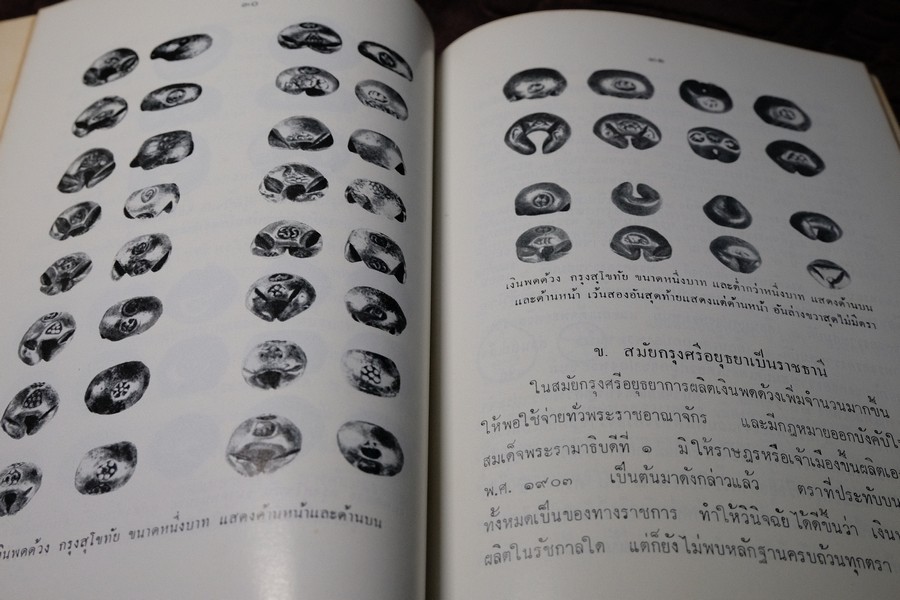 ๓๐
เงินพดด้วง กรุงสุโขทัย ขนาดหนึ่งบาท แสดงด้านหน้าและด้านบน
๓๑
เงินพดด้วง กรุงสุโขทัย ขนาดหนึ่งบาท และต่ำกว่าหนึ่งบาท แสดงด้านบน
และด้านหน้า เว้นสองอันสุดท้ายแสดงแต่ด้านหน้า อันล่างขวาสุดไม่มีตรา
ข. สมัยกรุงศรีอยุธยาเป็นราชธานี
ในสมัยกรุงศรีอยุธยาการผลิตเงินพดด้วงเพิ่มจำนวนมากขึ้น
ให้พอใช้จ่ายทั่วพระราชอาณาจักร และมีกฎหมายออกบังคับ
สมเด็จพระรามาธิบดีที่ ๑ มิให้ราษฎรหรือเจ้าเมืองขึ้นผลิต
พ.ศ. ๑๙๐๓ เป็นต้นมาดังกล่าวแล้ว ตราที่ประทับบน
ทั้งหมดเป็นของทางราชการ ทำให้วินิจฉัยได้ดีขึ้นว่า
ผลิตในรัชกาลใด แต่ก็ยังไม่พบหลักฐานครบถ้วนทุกตรา